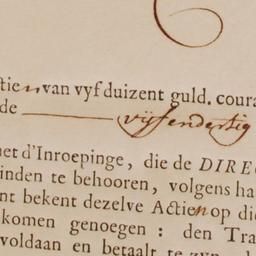 tien van vyf duizent guld. coura
de vijfendertig
net d'Inroepinge, die de DIRE
inden te behooren, volgens ha
nt bekent dezelve Actien op die
komen genoegen: den Tra
voldaan en betaalt te zyn, de